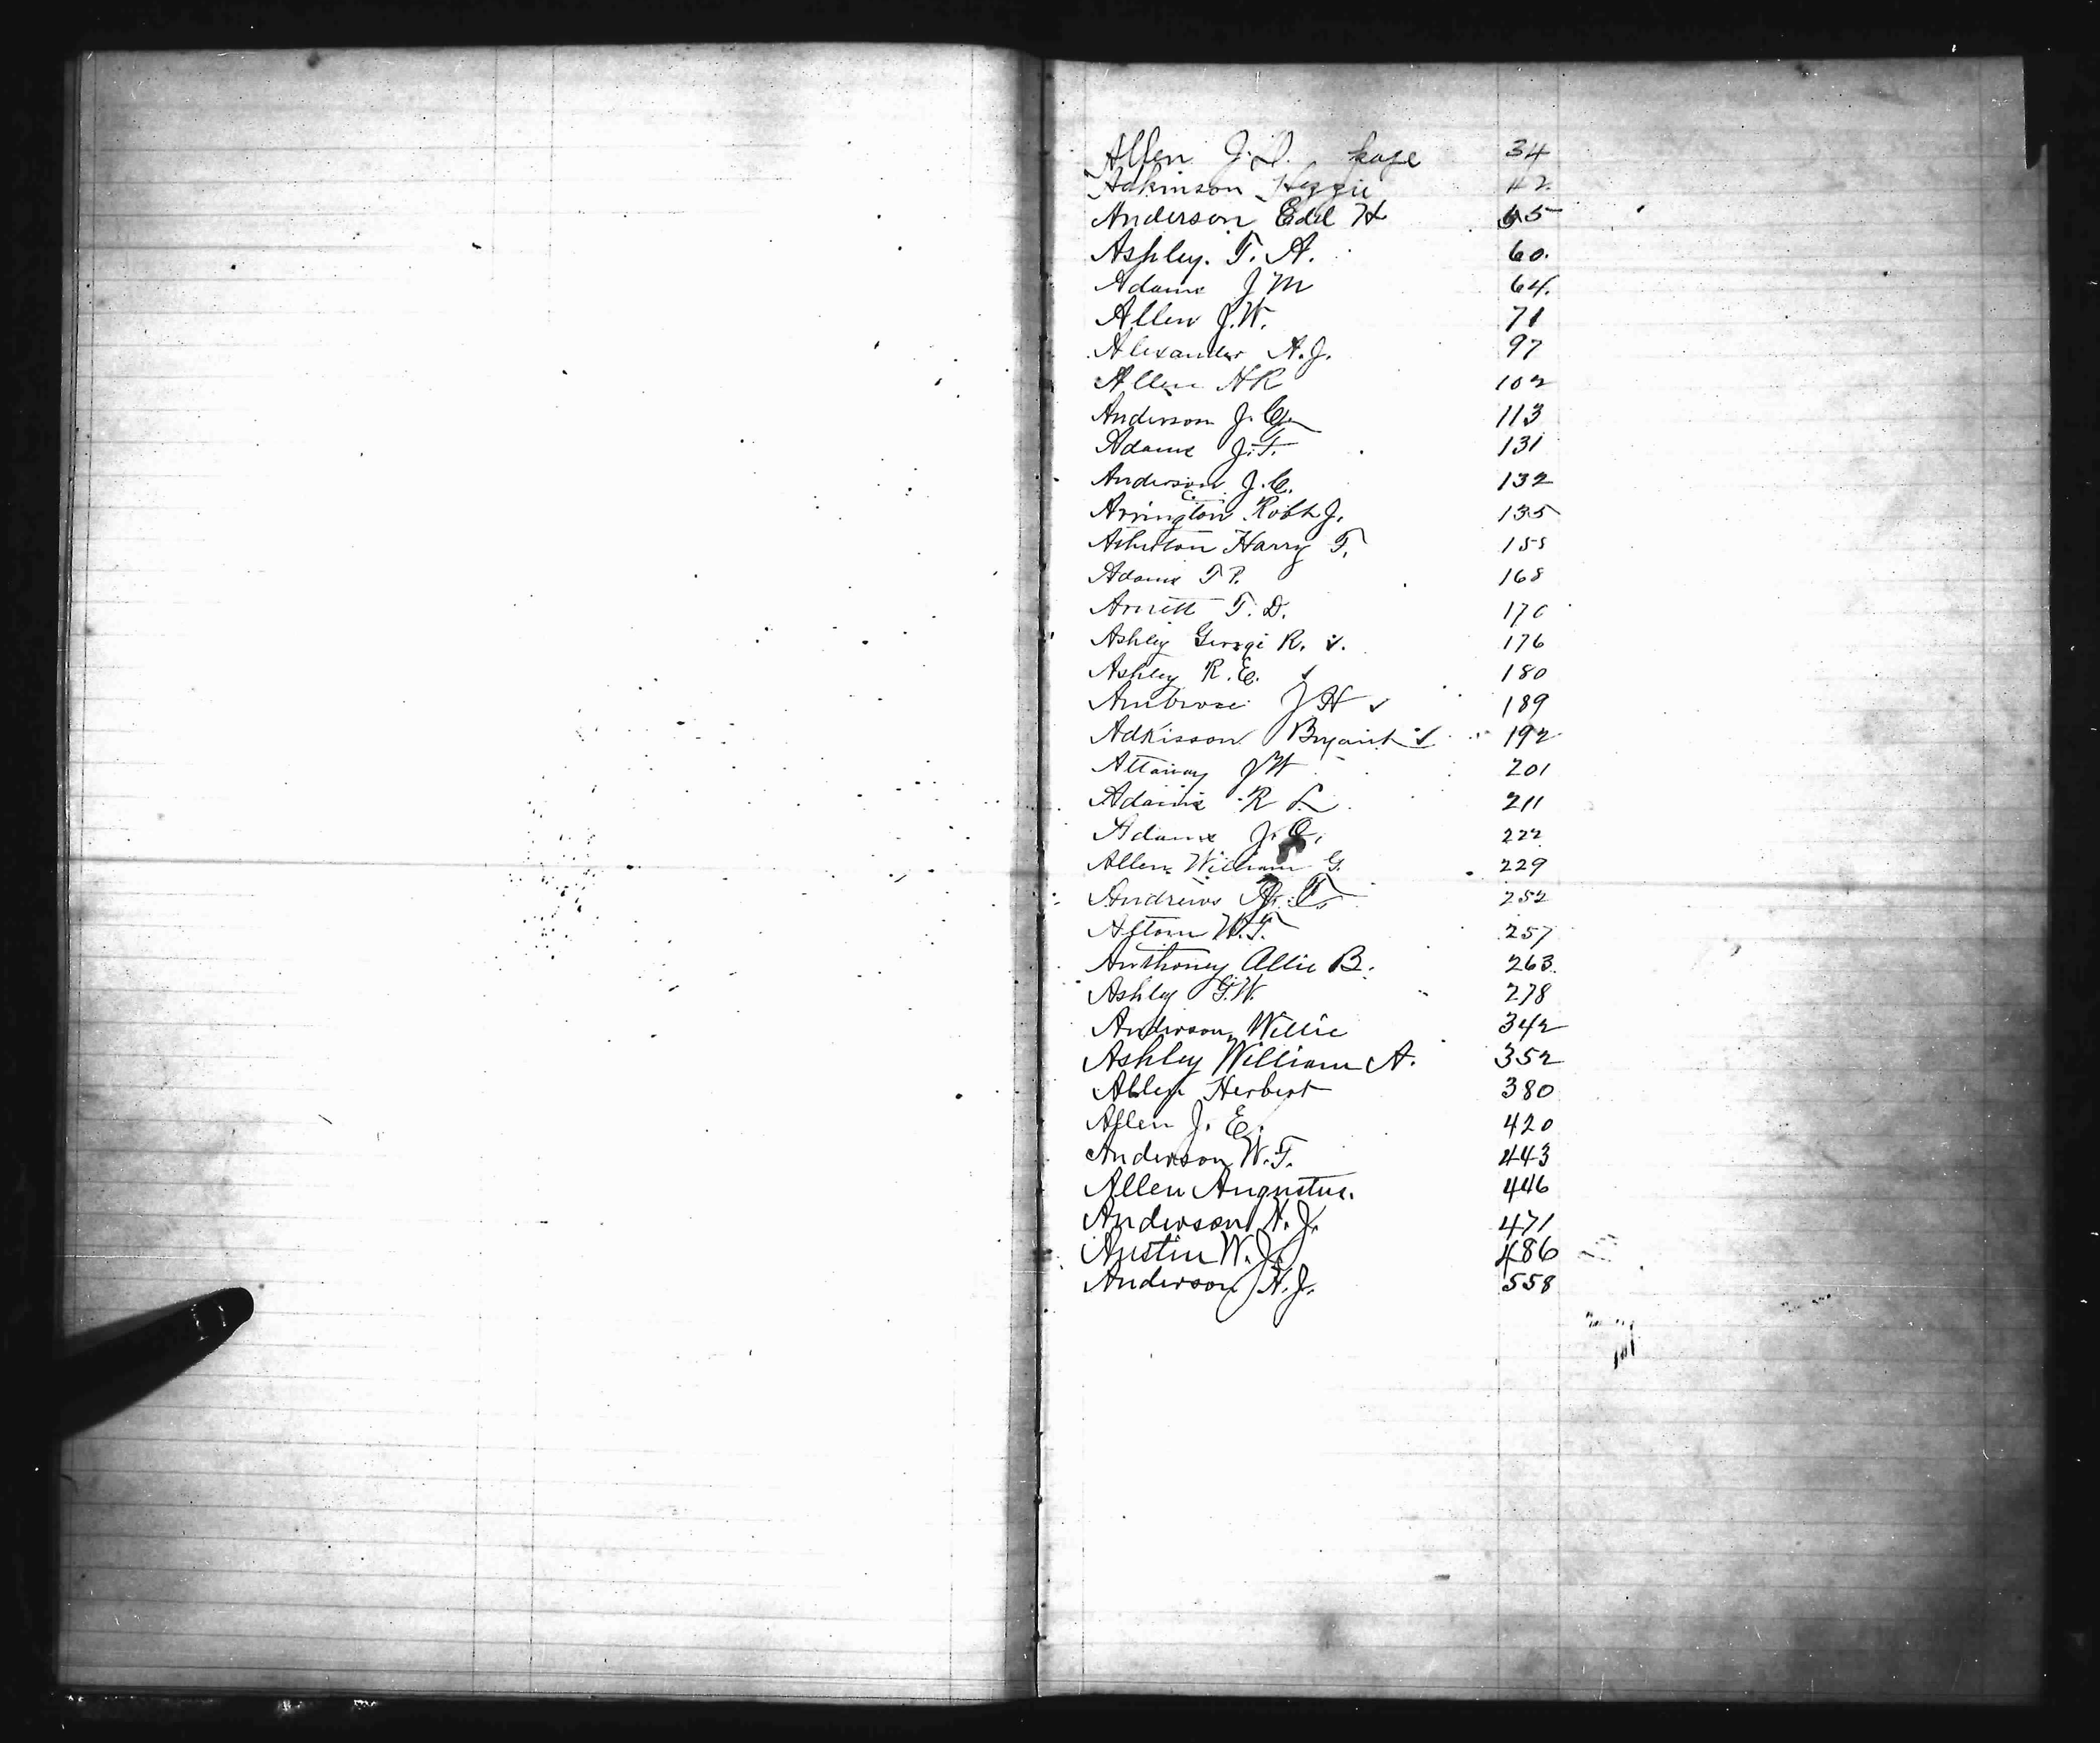 Allen J.D. page 34
Adkinson Hezzie 42
Anderson Edd H 65
Ashley. T. A. 60.
Adams J M 64.
Allen J.W. 71
Alexander A.J. 97
Allen N R 102
Anderson J. C. 113
Adams J.T. 131
Anderson J.C. 132
Arrington Robt J. 135
Harry T. 155
Adams T P. 168
Arnett T. D. 170
Ashley George R. v. 176
Ashley R.E. ✓ 180
Ambrose J H ✓ 189
Adkisson Bryant ✓ 192
Attaway J W 201
Adams R L 211
Adams J. 222
Allen William G. 229
Andrews T. 252
W.T. 257
Anthoney Allie B. 263.
Ashley G.W. 278
Anderson Willie 342
Ashley William A. 352
Allen Herbert 380
Allen J. E. 420
Anderson W.T. 443
Allen Augustus. 446
Anderson N.J. 471
Austin W.J. 486
Anderson N.J. 558